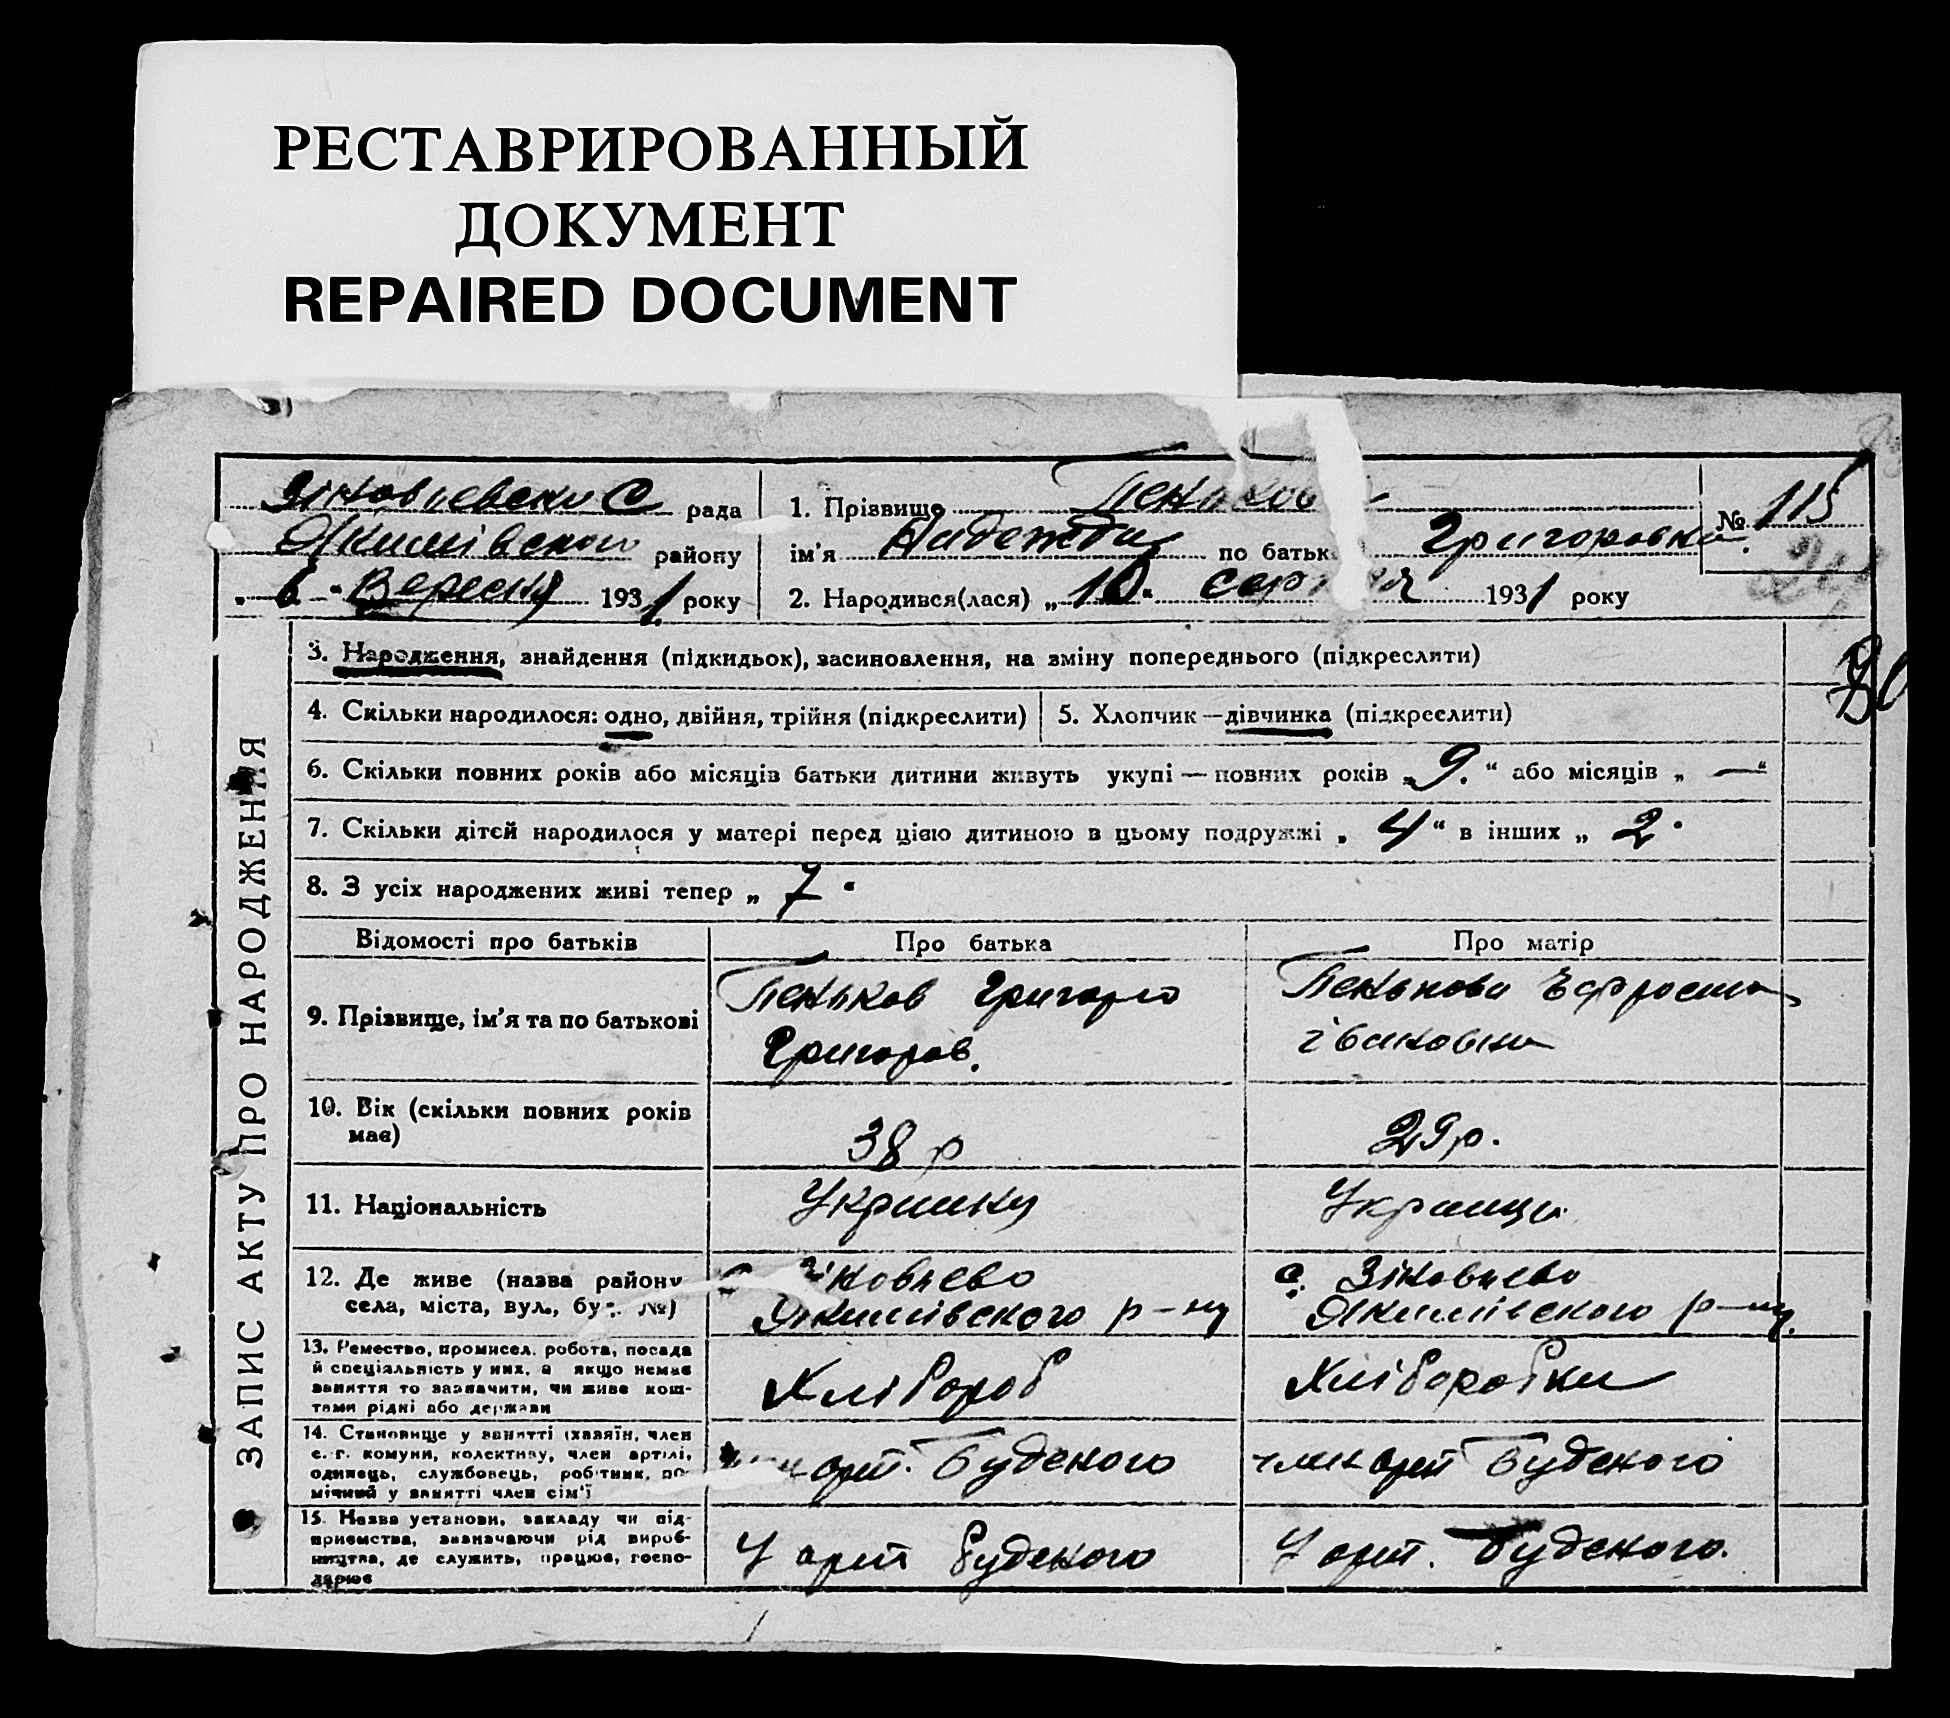 РЕСТАВРИРОВАННЫЙ
ДОКУМЕНТ
REPAIRED DOCUMENT
Зіновієвська С рада
Якимівського району
„ 6 “ Вересня 1931 року
1. Прізвище Пенькова
ім’я Надежда по батьк Григоровна
2. Народився(лася) „ 10 “ серпня 1931 року
№ 115
ЗАПИС АКТУ ПРО НАРОДЖЕННЯ
3. Народження, знайдення (підкидьок), засиновлення, на зміну попереднього (підкреслити)
4. Скільки народилося: одно, двійня, трійня (підкреслити)
5. Хлопчик — дівчинка (підкреслити)
6. Скільки повних років або місяців батьки дитини живуть укупі — повних років „ 9. “ або місяців „ — “
7. Скільки дітей народилося у матері перед цією дитиною в цьому подружжі „ 4 “ в інших „ 2 “
8. З усіх народжених живі тепер „ 7 “
Відомості про батьків Про батька Про матір
9. Прізвище, ім’я та по батькові
Пеньков Григорго
Григоров.
Пенькова Ефросина
івановна
10. Вік (скільки повних років
має)
38 р
29 р.
11. Національність
Українц
Українци
12. Де живе (назва району
села, міста, вул., буд. №)
с Зіновієво
Якимівського р-ну
с. Зіновієво
Якимівського р-ну.
13. Ремество, промисел. робота, посада
й спеціальність у них, а якщо немає
заняття то зазначити, чи живе кош-
тами рідні або держави
Хлібороб
Хліборобка
14. Становище у занятті (хазяїн, член
с.-г. комуни, колективу, член артілі,
одинець, службовець, робітник, по-
мічний у занятті член сім’ї
член арт. Будьоного
член арт Будьоного
15. Назва установи, закладу чи під-
приємства, зазначаючи рід вироб-
ництва, де служить, працює, госпо-
дарює
У арт Будьоного
У арт. Будьоного.